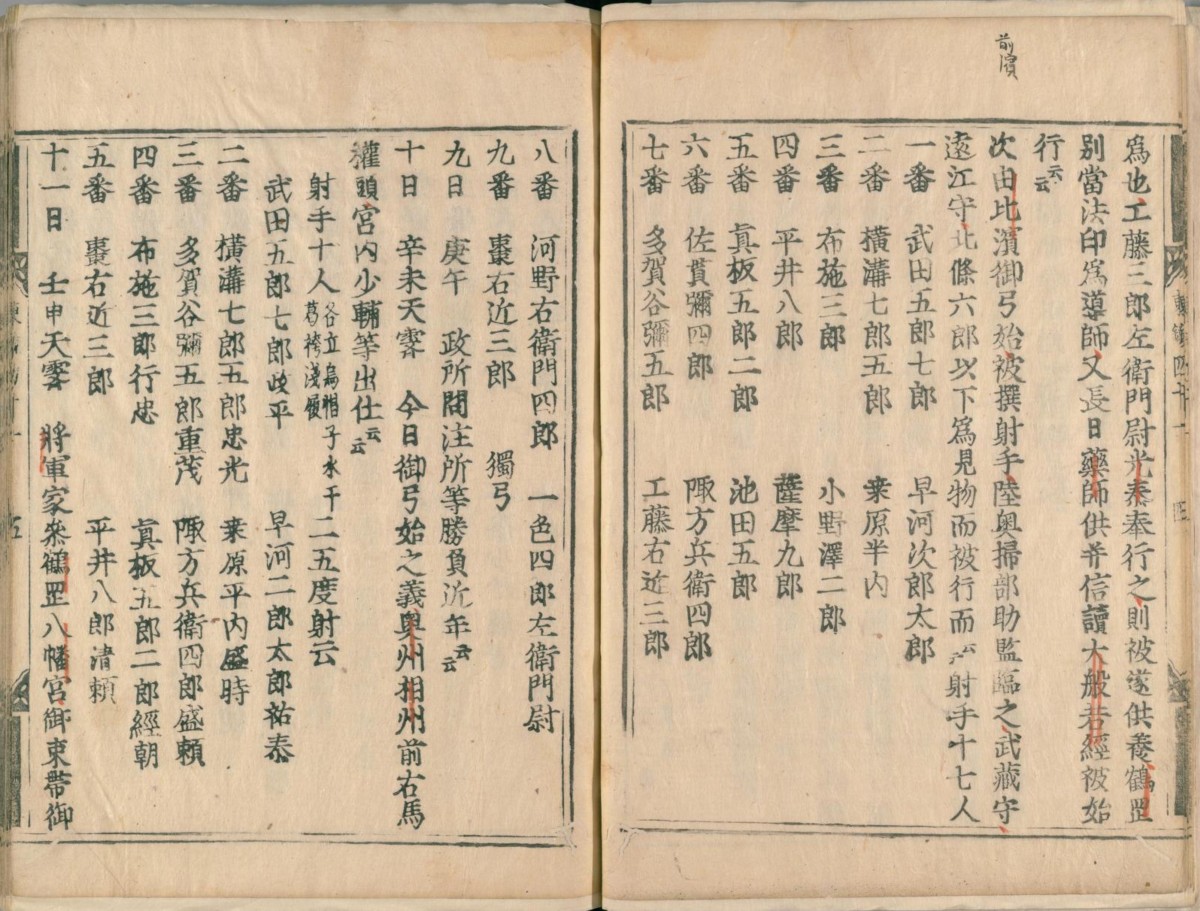 前濱
為也工藤三郎左衛門尉光泰奉行之則被遂供養鶴罡
別當法印為導師又長日藥師供并信讀大般若經被始
行云云
次由比濱御弓始被撰射手陸奥掃部助監臨之武藏守
遠江守北條六郎以下為見物而被行而云云射手十七人
一番 武田五郎七郎 早河次郎太郎
二番 横溝七郎五郎 桒原半内
三番 布施三郎 小野澤二郎
四番 平井八郎 薩摩九郎
五番 眞板五郎二郎 池田五郎
六番 佐貫彌四郎 陬方兵衛四郎
七番 多賀谷彌五郎 工藤右近三郎
八番 河野右衛門四郎 一色四郎左衛門尉
九番 棗右近三郎 獨弓
九日 庚午 政所問注所等勝負近年云云
十日 辛未天霽 今日御弓始之義奥州相州前右馬
權頭宮内少輔等出仕云云
射手十人各立烏帽子水干葛袴淺履二五度射云
武田五郎七郎政平 早河二郎太郎祐泰
二番 横溝七郎五郎忠光 桒原平内盛時
三番 多賀谷彌五郎重茂 陬方兵衛四郎盛頼
四番 布施三郎行忠 眞板五郎二郎經朝
五番 棗右近三郎 平井八郎清頼
十一日 壬申天霽 將軍家參鶴罡八幡宮御束帶御
五